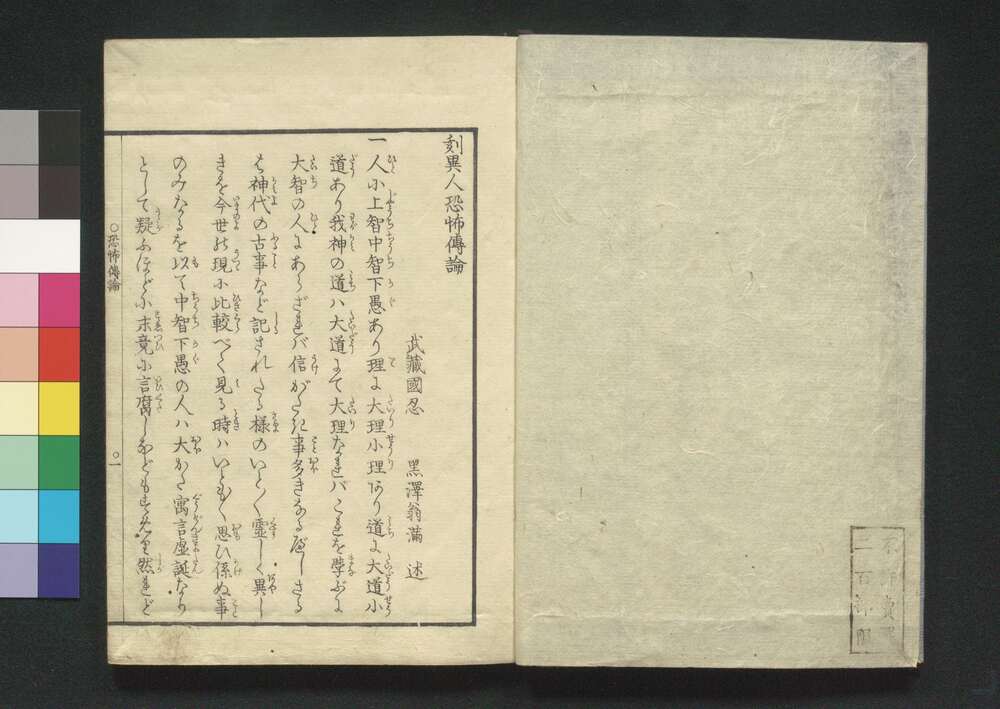 不許賣買
二百部限
刻異人恐怖傳論
武藏國忍　黒澤翁滿　述
一人に上智中智下愚あり理に大理小理あり道に大道小
道あり我神の道ハ大道にて大理なれバこれを學ぶに
大智の人にあらざれバ信がたき事多きなるべしさる
は神代の古事など記されたる様のいと〳〵靈しく異し
きを今世の現に比較べて見る時ハいとも〳〵思ひ係ぬ事
のみなるを以て中智下愚の人ハ大かた寓言虚誕なり
として疑ふほどに末竟に言腐しなどもすめり然れど
〇恐怖傳論
〇一